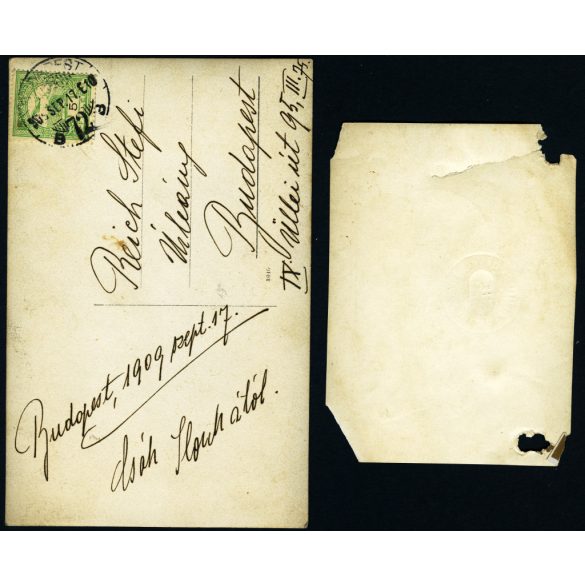 Reich Stefi
Úrleány
Budapest
IX. Üllei út 95, III. 25
Budapest, 1909 sept. 17.
Csók Ilonkától.